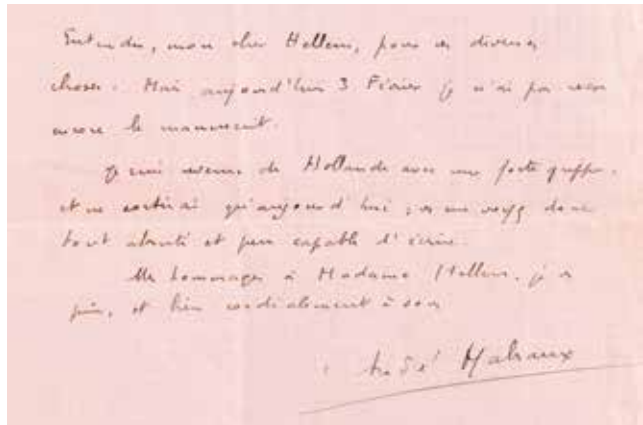 Entendu, mon cher Hellens, pour ces diverses
choses. Mais aujourd'hui 3 Février je n'ai pas reçu
encore le manuscrit.
Je suis revenu de Hollande avec une forte grippe,
et ne sortirai qu'aujourd'hui ; vous me voyez donc
tout abruti et peu capable d'écrire.
Mes hommages à Madame Hellens, je vous
prie, et bien cordialement à vous
André Malraux